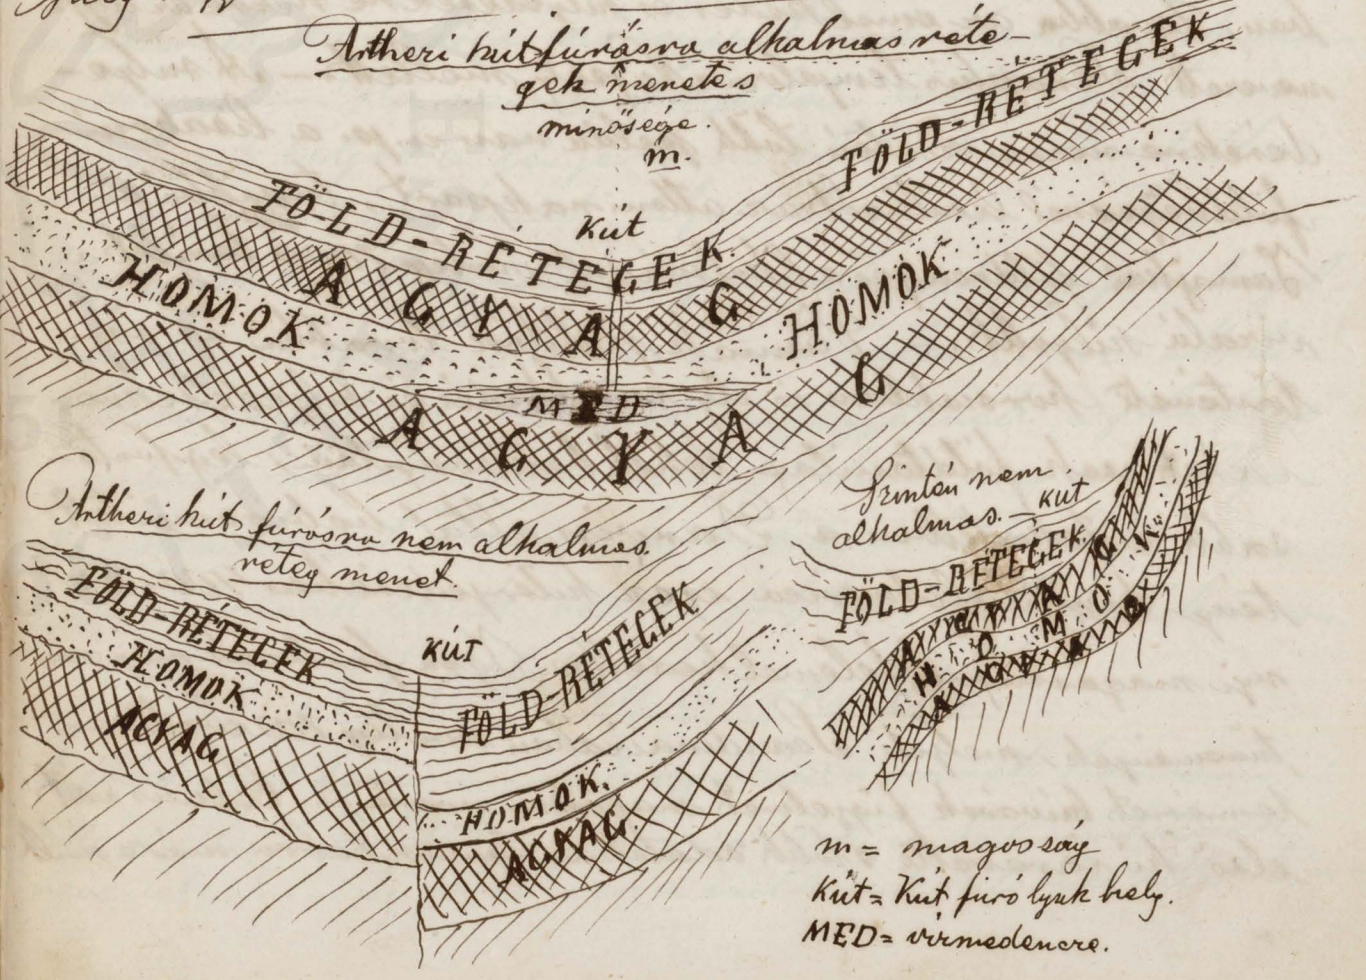 Artheri kút fúrásra alkalmas réte-
gek menete s
minősége.
m.
FÖLD-RÉTEGEK
FÖLD-RÉTEGEK
Kút
AGYAG
HOMOK
HOMOK
MED
AGYAG
Artheri kút fúrásra nem alkalmas
réteg menet.
FÖLD-RÉTEGEK
HOMOK
AGYAG
KÚT
FÖLD-RÉTEGEK
HOMOK.
AGYAG
Szintén nem
alkalmas. - KÚT
FÖLD-RÉTEGEK
AGYAG
HOMOK
AGYAG
m = magosság
Kút = Kút fúró lyuk hely.
MED = vízmedencze.